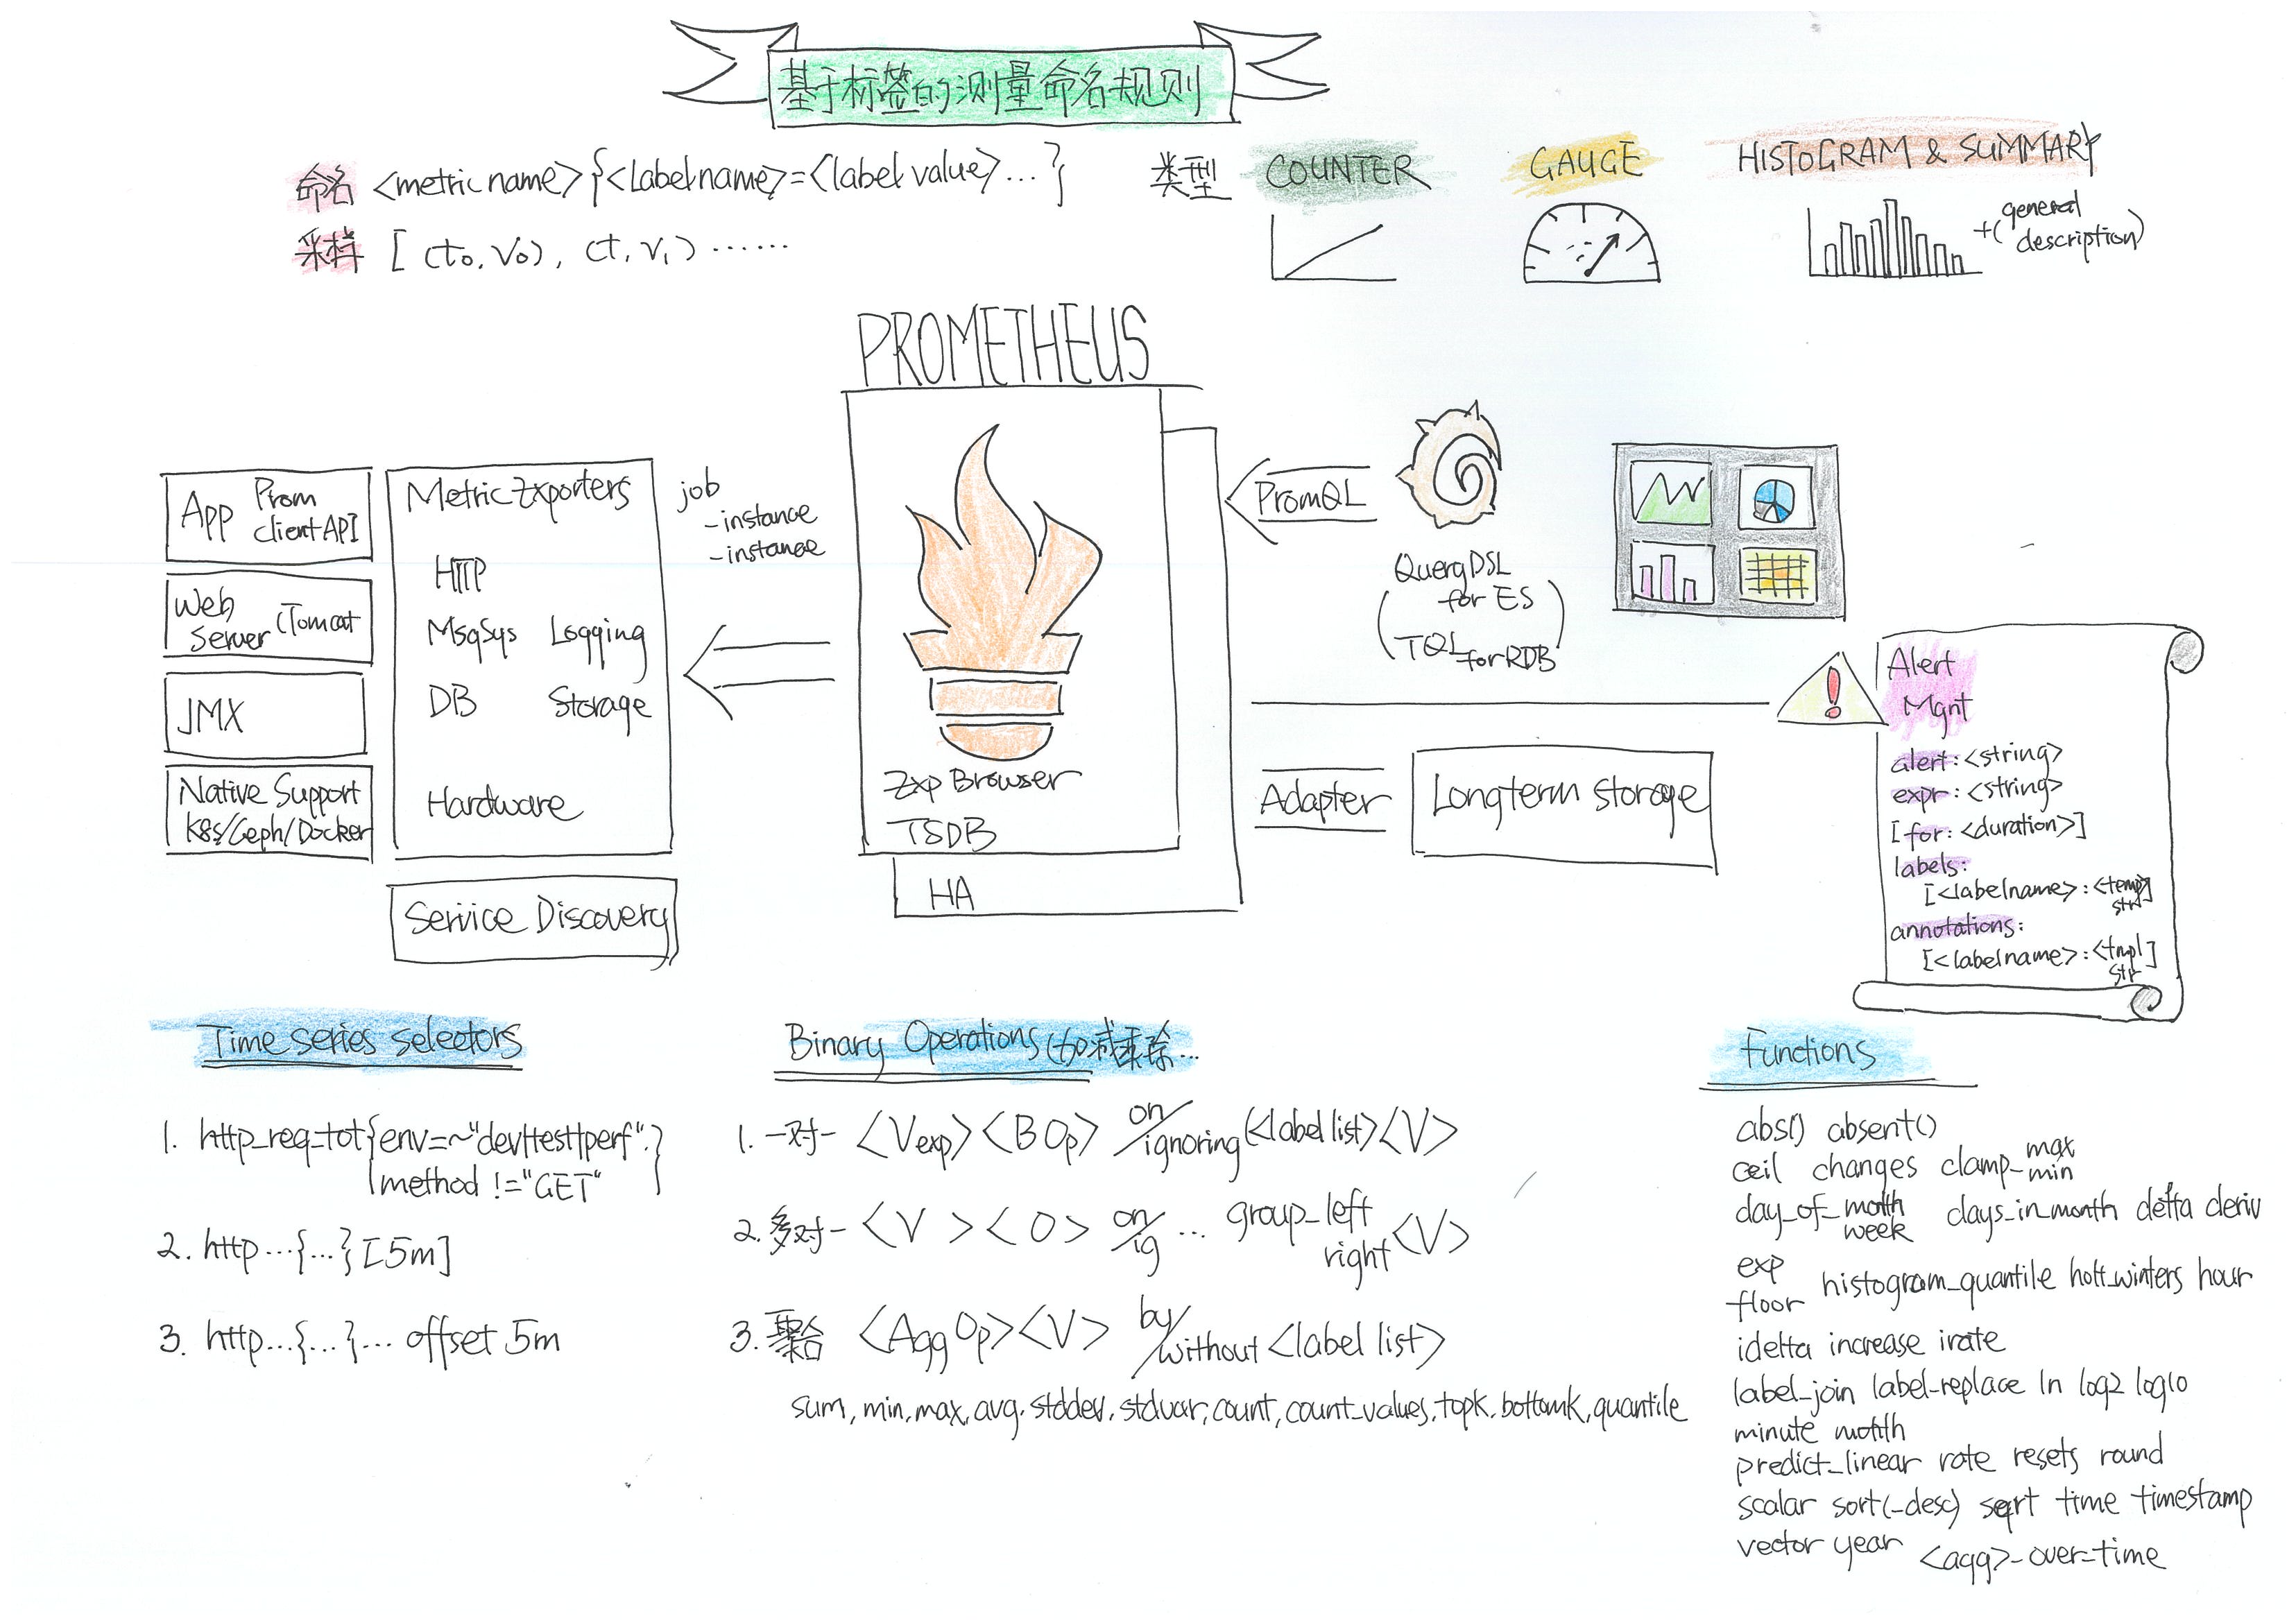 基于标签的测量命名规则
命名 <metric name>{<Label name>=<label value>...}
采样 [ (t0, V0), (t, v1) ......
类型 COUNTER GAUGE HISTOGRAM & SUMMARY
+(general
description)
PROMETHEUS
App Prom
client API
Web
Server (Tomcat
JMX
Native Support
K8s/Ceph/Docker
Metric Exporters
HTTP
MsgSys Logging
DB Storage
Hardware
Service Discovery
job
-instance
-instance
Exp Browser
TSDB
HA
PromQL
QueryDSL
for ES
TQL for RDB
Adapter
Longterm storage
Alert
Mgnt
alert: <string>
expr: <string>
[for: <duration>]
labels:
[<labelname>: <temp]
str
annotations:
[<labelname>: <tmpl]
str
Time series selectors
1. http_req_tot{env=~"dev|test|perf".
method !="GET"}
2. http...{...}[5m]
3. http...{...}... offset 5m
Binary Operations (加减乘除...
1. 一对一 <Vexp><BOp> on/ignoring(<label list><V>
2. 多对一 <V><O> on/ig ... group_left
right <V>
3. 聚合 <Agg Op><V> by/without <label list>
sum, min, max, avg, stddev, stdvar, count, count_values, topk, bottomk, quantile
Functions
abs() absent()
ceil changes clamp_max
min
day_of_month
week days_in_month delta deriv
exp
floor histogram_quantile holt_winters hour
idelta increase irate
label_join label_replace ln log2 log10
minute month
predict_linear rate resets round
scalar sort(_desc) sqrt time timestamp
vector year <agg>_over_time